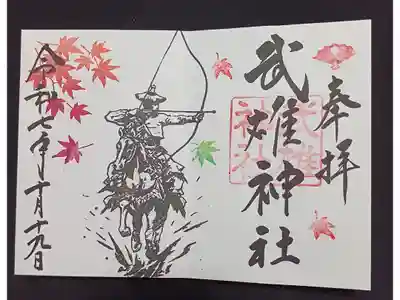 奉拝
武雄神社
武雄神社
令和七年十月十九日